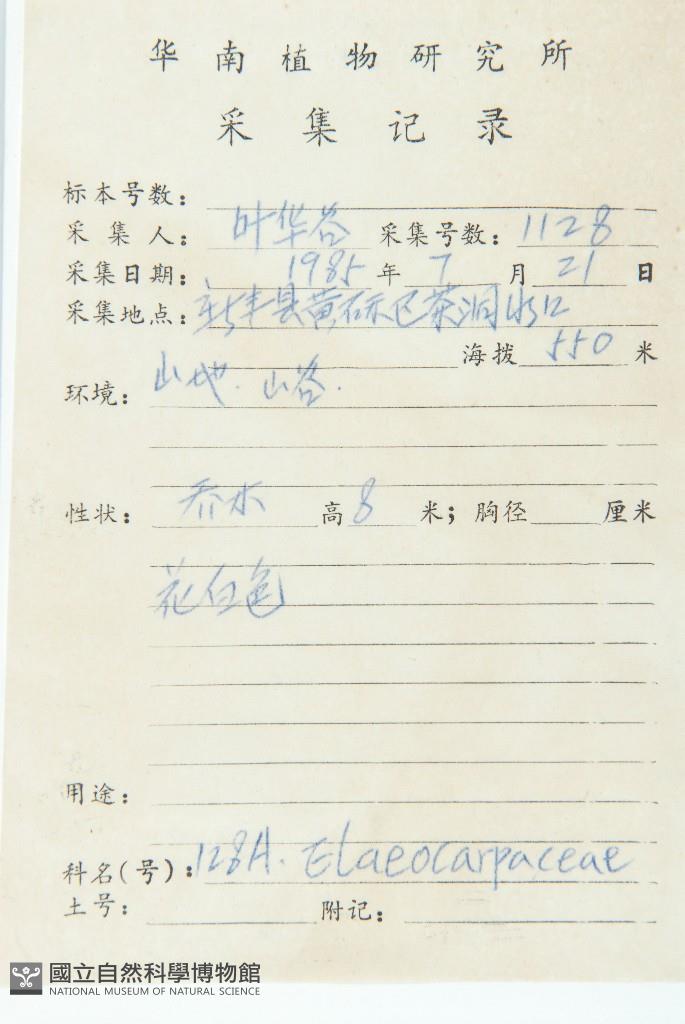 华南植物研究所
采集记录
标本号数：
采集人：叶华谷 采集号数：1128
采集日期：1985年7月21日
采集地点：新丰县黄磜区茶洞水口
海拨550米
环境：山地.山谷.
性状：乔木 高8米；胸径 厘米
花白色
用途：
科名(号)：128A. Elaeocarpaceae
土号： 附记：
國立自然科學博物館
NATIONAL MUSEUM OF NATURAL SCIENCE